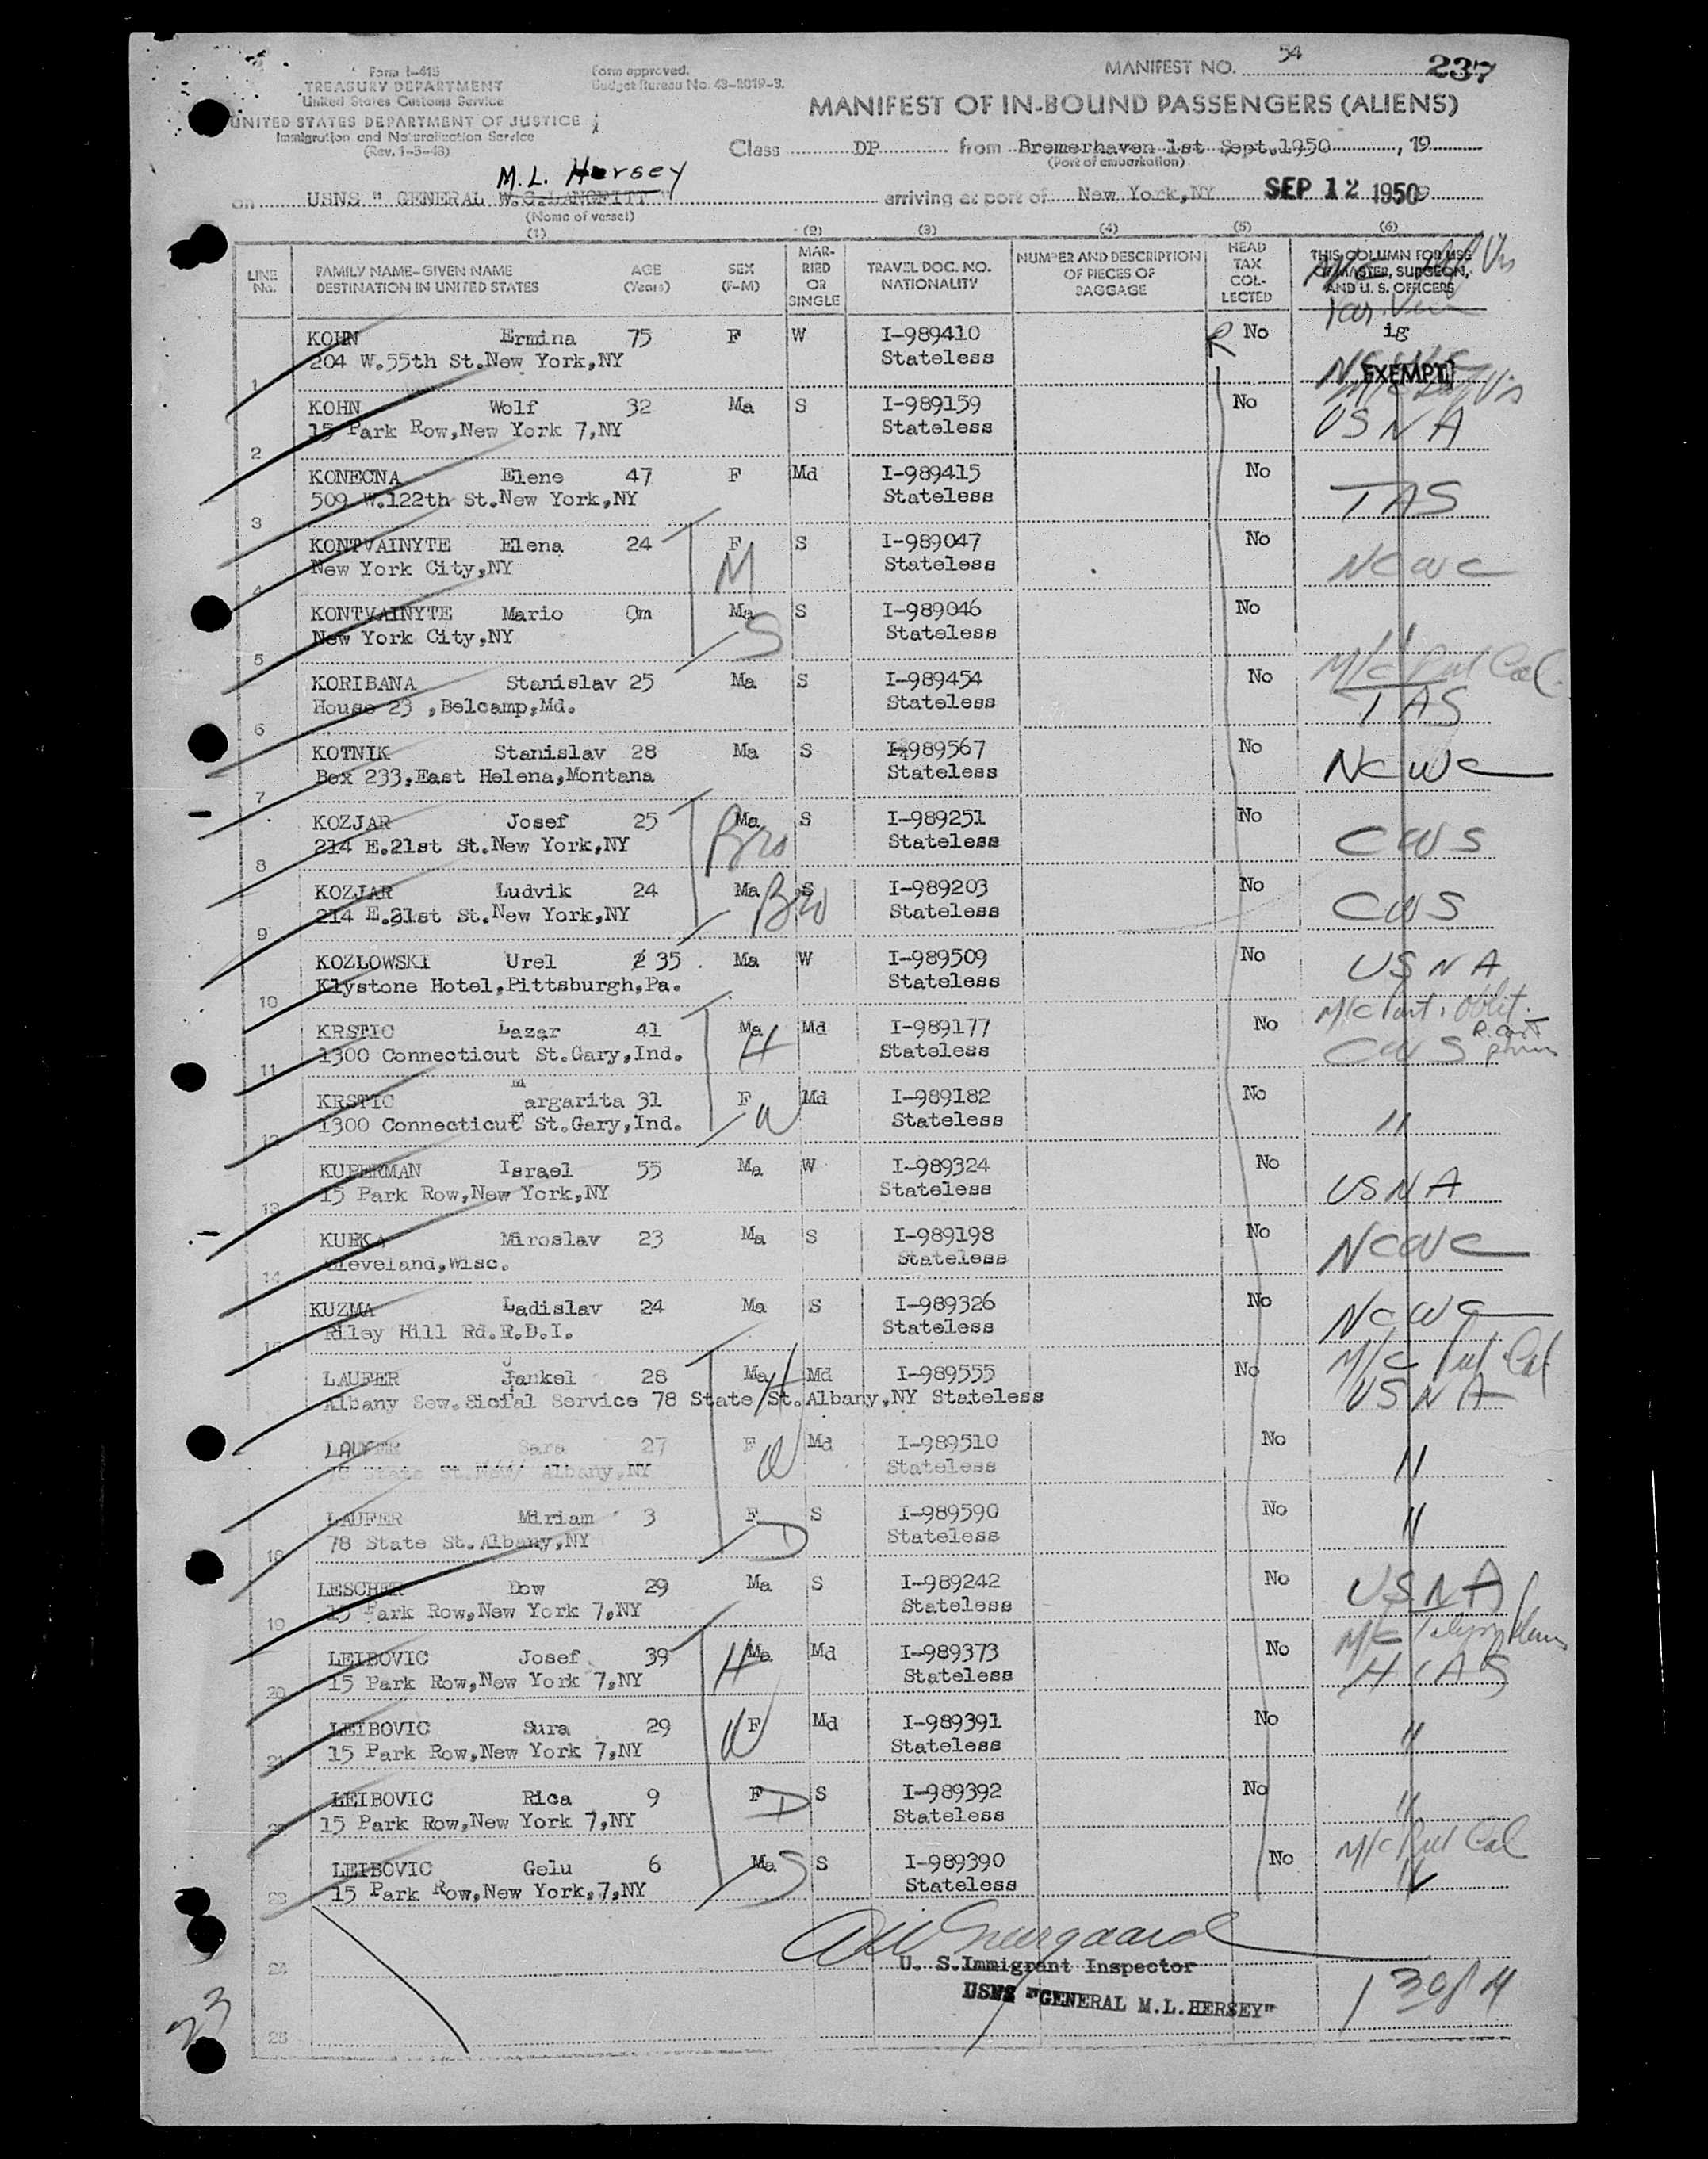 MANIFEST NO. 54
237
Form I-415
TREASURY DEPARTMENT
United States Customs Service
UNITED STATES DEPARTMENT OF JUSTICE
Immigration and Naturalization Service
(Rev. 1-3-48)
Form approved.
Budget Bureau No. 43-R019-3.
MANIFEST OF IN-BOUND PASSENGERS (ALIENS)
Class DP from Bremerhaven 1st Sept.1950, 19
(Port of embarkation)
M.L. Hersey
on USNS " GENERAL W.G.LANGFITT " arriving at port of New York,NY SEP 12 1950
(Name of vessel)
(1) (2) (3) (4) (5) (6)
LINE No. FAMILY NAME-GIVEN NAME DESTINATION IN UNITED STATES AGE (Years) SEX (F-M) MARRIED OR SINGLE TRAVEL DOC. NO. NATIONALITY NUMBER AND DESCRIPTION OF PIECES OF BAGGAGE HEAD TAX COLLECTED THIS COLUMN FOR USE OF MASTER, SURGEON, AND U. S. OFFICERS
KOHN Ermina 75 F W I-989410 R No ig
1 204 W.55th St.New York,NY Stateless EXEMPT
KOHN Wolf 32 Ma S I-989159 No
2 15 Park Row,New York 7,NY Stateless USNA
KONECNA Elene 47 F Md I-989415 No
3 509 W.122th St.New York,NY Stateless TAS
KONTVAINYTE Elena 24 F M S I-989047 No
4 New York City,NY Stateless NCWC
KONTVAINYTE Mario 9m Ma S S I-989046 No
5 New York City,NY Stateless "
KORIBANA Stanislav 25 Ma S I-989454 No M/C Pul Cal.
6 House 23 ,Belcamp,Md. Stateless TAS
KOTNIK Stanislav 28 Ma S I-989567 No
7 Box 233,East Helena,Montana Stateless NCWC
KOZJAR Josef 25 Ma Bro S I-989251 No
8 214 E.21st St.New York,NY Stateless CWS
KOZJAR Ludvik 24 Ma Bro S I-989203 No
9 214 E.21st St.New York,NY Stateless CWS
KOZLOWSKI Urel 35 Ma W I-989509 No
10 Klystone Hotel,Pittsburgh,Pa. Stateless USNA
KRSTIC Lazar 41 Ma H Md I-989177 No
11 1300 Connecticut St.Gary,Ind. Stateless CWS
KRSTIC Margarita 31 F W Md I-989182 No
12 1300 Connecticut St.Gary,Ind. Stateless "
KUPERMAN Israel 55 Ma W I-989324 No
13 15 Park Row,New York,NY Stateless USNA
KUBKA Miroslav 23 Ma S I-989198 No
14 Cleveland,Wisc. Stateless NCWC
KUZMA Ladislav 24 Ma S I-989326 No
15 Riley Hill Rd.R.D.I. Stateless NCWC
LAUFER Jankel 28 Ma H Md I-989555 No M/C Pul. Cal
Albany Sew.Sicial Service 78 State St.Albany,NY Stateless USNA
LAUFER Sara 27 F W Md I-989510 No
78 State St. Albany,NY Stateless "
LAUFER Miriam 3 F D S I-989590 No
18 78 State St.Albany,NY Stateless "
LESCHER Dow 29 Ma S I-989242 No
19 15 Park Row,New York 7,NY Stateless USNA
LEIBOVIC Josef 39 H Ma Md I-989373 No M/C
20 15 Park Row,New York 7,NY Stateless HIAS
LEIBOVIC Sura 29 W F Md I-989391 No
21 15 Park Row,New York 7,NY Stateless "
LEIBOVIC Rica 9 F D S I-989392 No
22 15 Park Row,New York 7,NY Stateless "
LEIBOVIC Gelu 6 Ma S S I-989390 No M/C Pul Cal
23 15 Park Row,New York,7,NY Stateless "
24
U. S.Immigrant Inspector
USNS "GENERAL M.L.HERSEY"
23
25